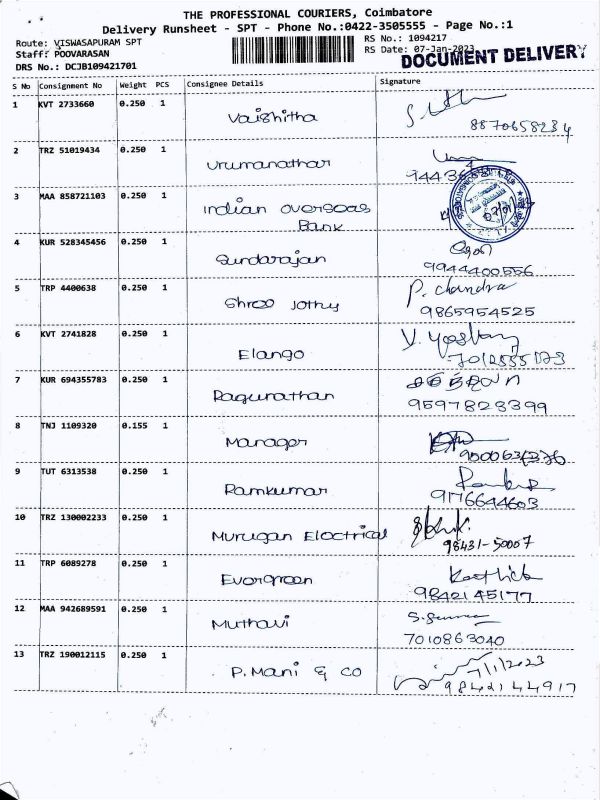 THE PROFESSIONAL COURIERS, Coimbatore
Delivery Runsheet - SPT - Phone No.:0422-3505555 - Page No.:1
Route: VISWASAPURAM SPT
RS No.: 1094217
Staff: POOVARASAN
RS Date: 07-Jan-2023
DOCUMENT DELIVERY
DRS No.: DCJB109421701
S No Consignment No Weight PCS Consignee Details Signature
1 KVT 2733660 0.250 1 Vaishitha
8870658234
2 TRZ 51019434 0.250 1
3 MAA 858721103 0.250 1 Indian Overseas
Bank
4 KUR 528345456 0.250 1 Sundarajan
9944400556
5 TRP 4400638 0.250 1 Shree Jothy P. Chandra
9865954525
6 KVT 2741828 0.250 1 Elango
7 KUR 694355783 0.250 1 Ragunathan
9597828399
8 TNJ 1109320 0.155 1 Manager
9 TUT 6313538 0.250 1 Ramkumar
9176644603
10 TRZ 130002233 0.250 1 Murugan Electrical
98431-50007
11 TRP 6089278 0.250 1 Evergreen
9842145177
12 MAA 942689591 0.250 1 Muthavi
7010863040
13 TRZ 190012115 0.250 1 P. Mani & Co 7/1/2023
9842144917